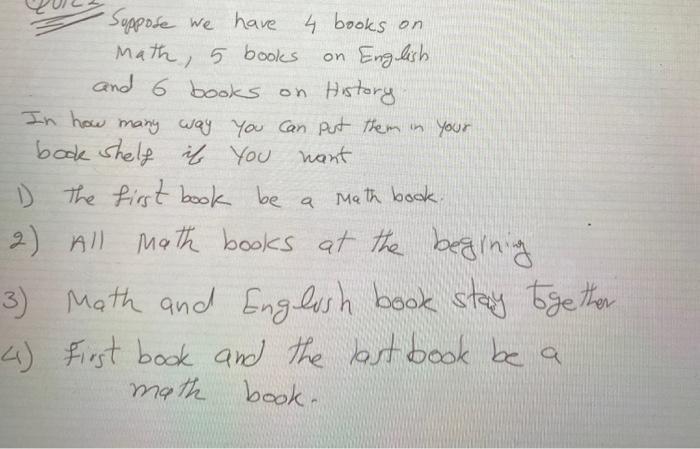 Suppose we have 4 books on
Math, 5 books on English
and 6 books on History.
In how many way you can put them in your
book shelf if you want
1) The first book be a math book.
2) All Math books at the begining
3) Math and English book stay together
4) First book and the last book be a
math book.